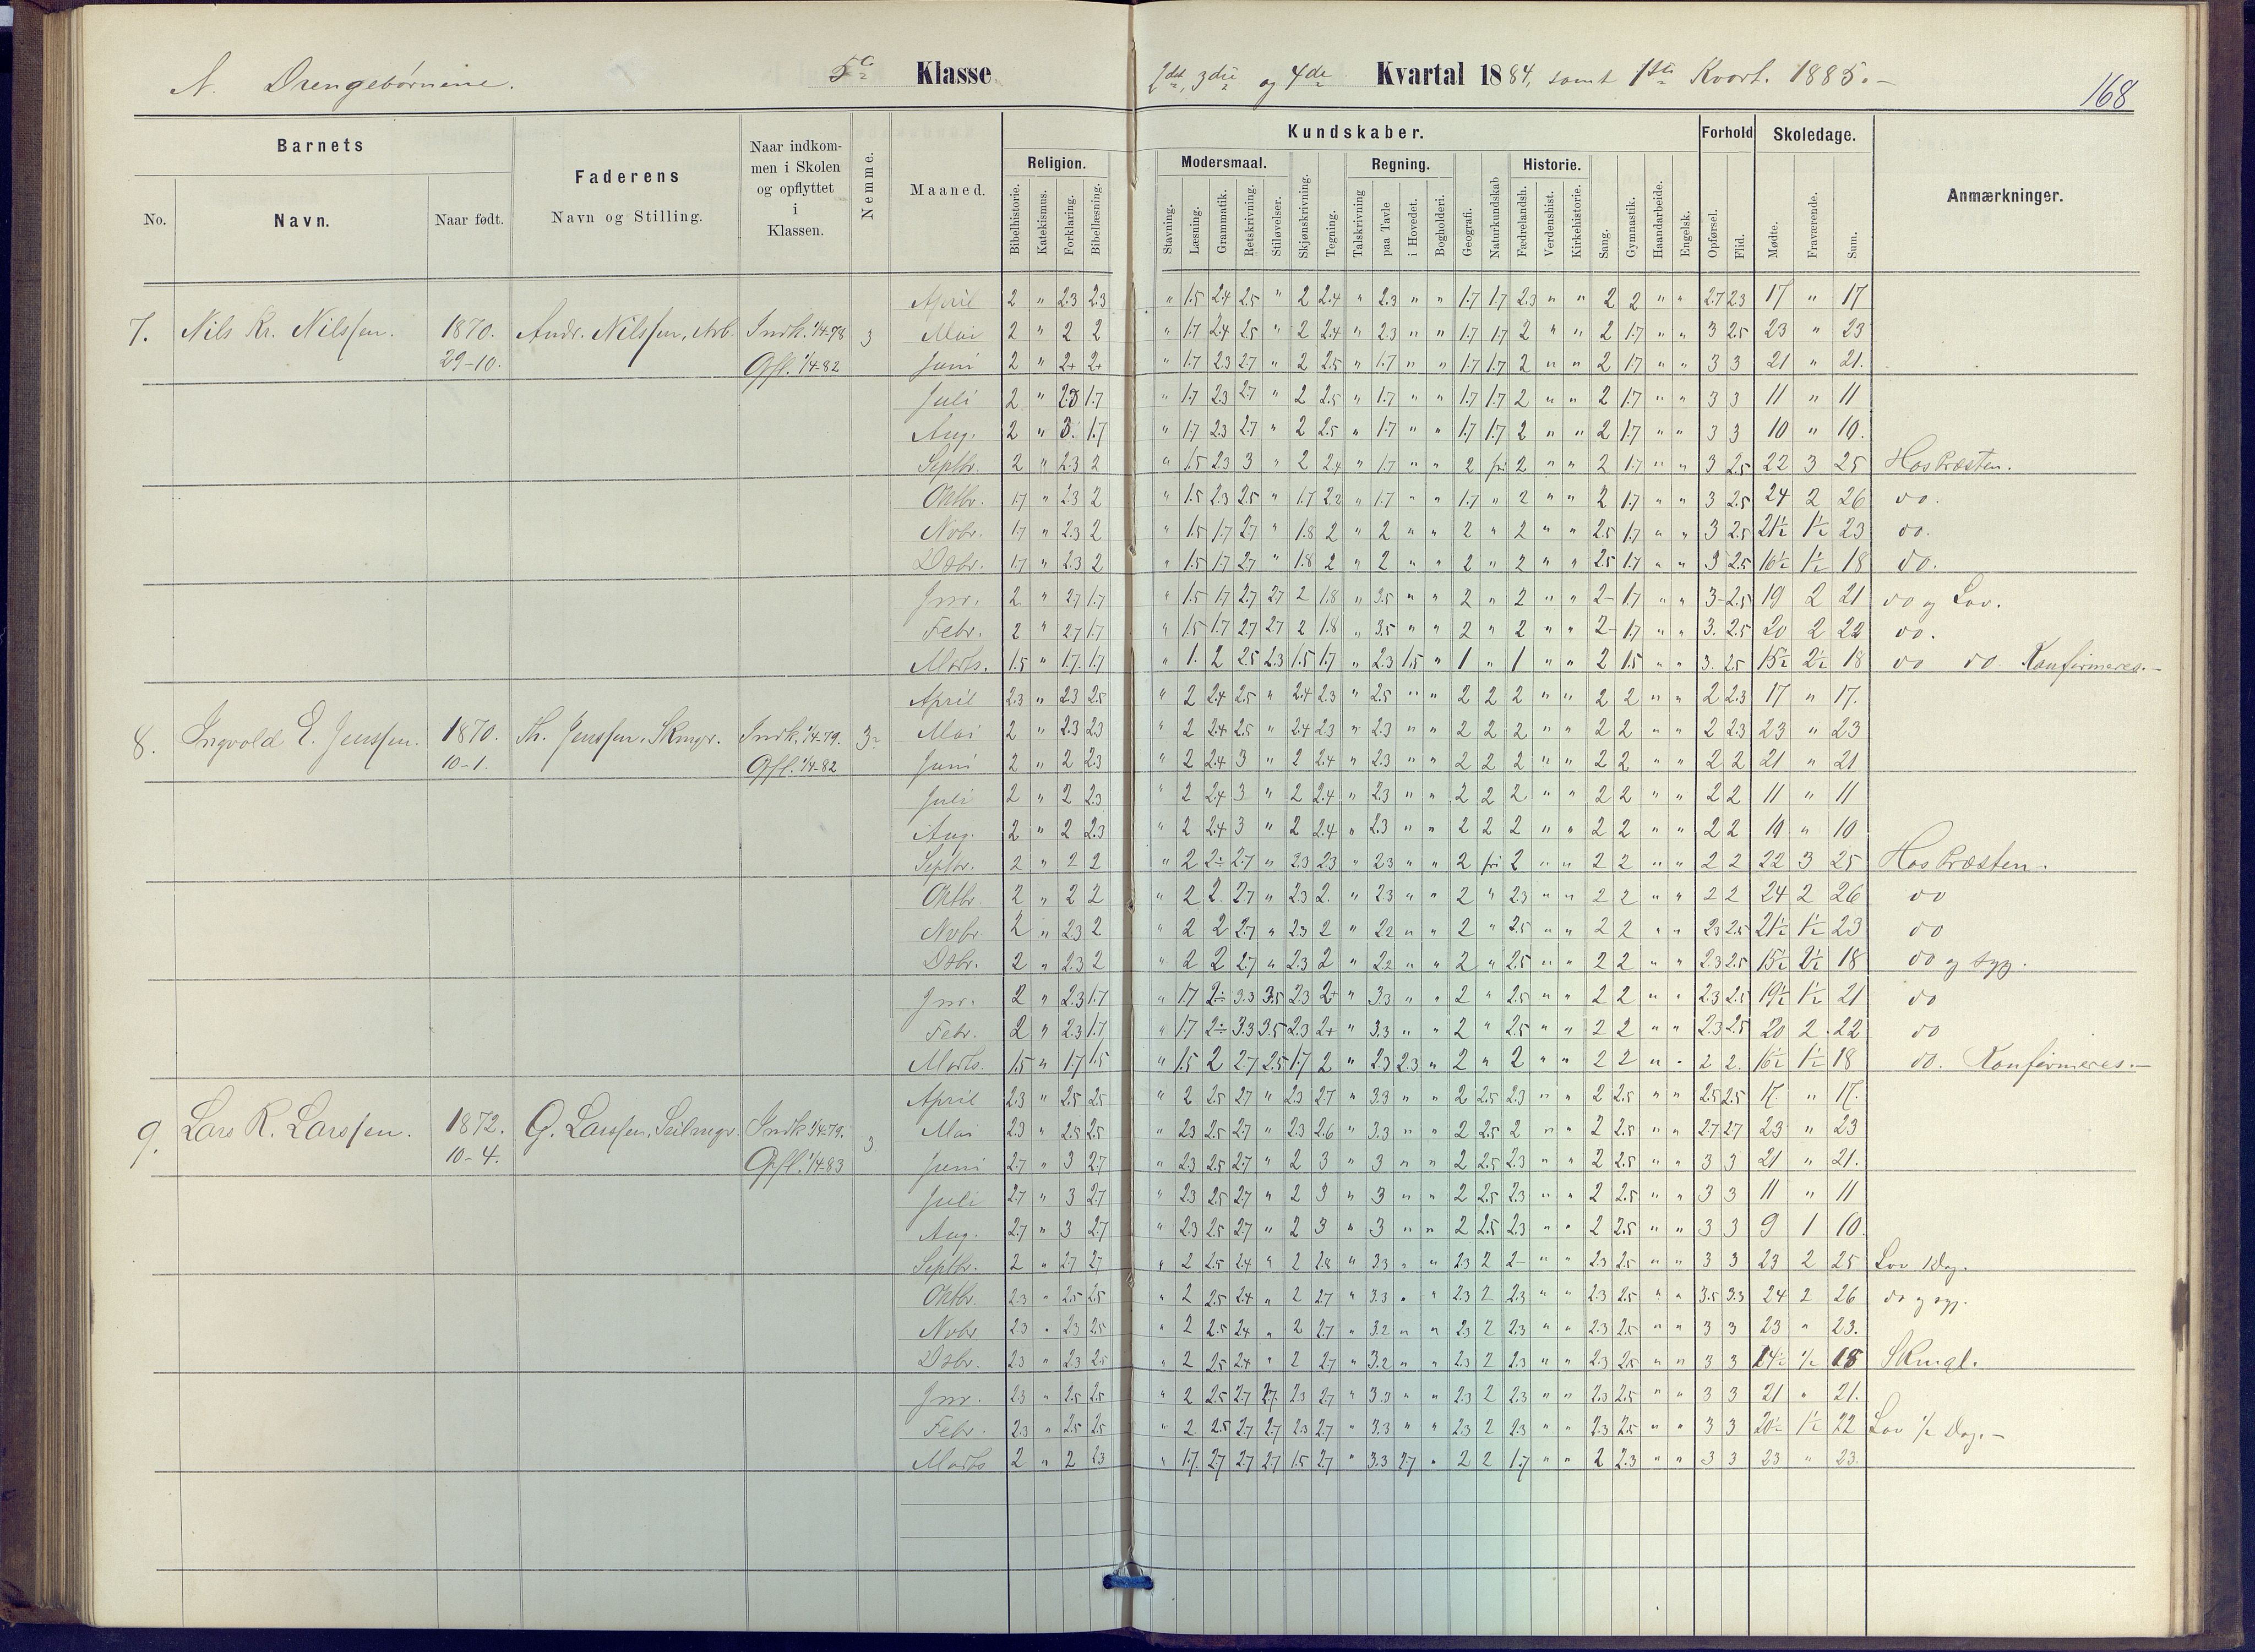 N. Drengebørnene. 5te Klasse 2det, 3die og 4de Kvartal 1884, samt 1ste Kvart. 1885.-
168
Barnets Faderens Navn og Stilling. Naar indkommen i Skolen og opflyttet i Klassen. Nemme. Maaned. Religion. Kundskaber. Forhold Skoledage. Anmærkninger.
No. Navn. Naar født.
Bibelhistorie. Katekismus. Forklaring. Bibellæsning.
Modersmaal. Regning. Historie.
Stavning. Læsning. Grammatik. Retskrivning. Stiløvelser. Skjønskrivning. Tegning. Talskrivning paa Tavle i Hovedet. Bogholderi. Geografi. Naturkundskab Fædrelandsh. Verdenshist. Kirkehistorie. Sang. Gymnastik. Haandarbeide. Engelsk. Opførsel. Flid. Mødte. Fraværende. Sum.
April 2 " 2.3 2.3 " 1.5 2.4 2.5 " 2 2.4 " 2.3 " " 1.7 1.7 2.3 " " 2 2 " " 2.7 2.3 17 " 17
7. Nils Kr. Nilssen. 1870. Andr. Nilssen, Arb. Indk. 1/4-78 3 Mai 2 " 2 2 " 1.7 2.4 2.5 " 2 2.4 " 2.3 " " 1.7 1.7 2 " " 2 1.7 " " 3 2.5 23 " 23
29-10. Opfl. 1/4-82 Juni 2 " 2+ 2+ " 1.7 2.3 2.7 " 2 2.5 " 1.7 " " 1.7 1.7 2 " " 2 1.7 " " 3 3 21 " 21.
Juli 2 " 2.3 1.7 " 1.7 2.3 2.7 " 2 2.5 " 1.7 " " 1.7 1.7 2 " " 2 1.7 " " 3 3 11 " 11
Aug. 2 " 3. 1.7 " 1.7 2.3 2.7 " 2 2.5 " 1.7 " " 1.7 1.7 2 " " 2 1.7 " " 3 3 10 " 10.
Septbr. 2 " 2.3 2 " 1.5 2.3 3 " 2 2.4 " 1.7 " " 2 fri 2 " " 2 1.7 " " 3 2.5 22 3 25 Hos Præsten.
Oktbr. 1.7 " 2.3 2 " 1.5 2.3 2.5 " 1.7 2.2 " 1.7 " " 1.7 " 2 " " 2 1.7 " " 3 2.5 24 2 26 do.
Novbr. 1.7 " 2.3 2 " 1.5 1.7 2.7 " 1.8 2 " 2 " " 2 " 2 " " 2.5 1.7 " " 3 2.5 21½ 1½ 23 do.
Dsbr. 1.7 " 2.3 2 " 1.5 1.7 2.7 " 1.8 2 " 2 " " 2 " 2 " " 2.5 1.7 " " 3 2.5 16½ 1½ 18 do.
Jnr. 2 " 2.7 1.7 " 1.5 1.7 2.7 2.7 2 1.8 " 3.5 " " 2 " 2 " " 2- 1.7 " " 3- 2.5 19 2 21 do og Lov.
Febr. 2 " 2.7 1.7 " 1.5 1.7 2.7 2.7 2 1.8 " 3.5 " " 2 " 2 " " 2- 1.7 " " 3. 2.5 20 2 22 do.
Marts. 1.5 " 1.7. 1.7 " 1. 2 2.5 2.3 1.5 1.7 " 2.3 1.5 " 1 " 1 " " 2 1.5 " " 3. 2.5 15½ 2½ 18 do do Konfirmeres.-
April 2.3 " 2.3 2.5 " 2 2.4 2.5 " 2.4 2.3 " 2.5 " " 2 2 2 " " 2 2 " " 2 2.3 17 " 17.
8. Ingvold E. Jenssen. 1870. Th. Jenssen, Skmgr. Indk. 1/4-79. 3- Mai 2 " 2.3 2.3 " 2 2.4 2.5 " 2.4 2.3 " 2.3 " " 2 2 2 " " 2 2 " " 2 2.3 23 " 23
10-1. Opfl. 1/4-82 Juni 2 " 2 2.3 " 2 2.4 3 " 2 2.4 " 2.3 " " 2 2 2 " " 2 2 " " 2 2 21 " 21
Juli 2 " 2 2.3 " 2 2.4 3 " 2 2.4 " 2.3 " " 2 2 2 " " 2 2 " " 2 2 11 " 11
Aug. 2 " 2 2.3 " 2 2.4 3 " 2 2.4 " 2.3 " " 2 2 2 " " 2 2 " " 2 2 10 " 10
Septbr. 2 " 2 2 " 2 2÷ 2.7 " 2.3 2.3 " 2.3 " " 2 fri 2 " " 2 2 " " 2 2 22 3 25 Hos Præsten.
Oktbr. 2 " 2 2 " 2 2. 2.7 " 2.3 2. " 2.3 " " 2 " 2.3 " " 2 2 " " 2 2 24 2 26 do
Novbr. 2 " 2.3 2 " 2 2 2.7 " 2.3 2 " 2.2 " " 2 " 2.5 " " 2 2 " " 2.3 2.5 21½ 1½ 23 do
Dsbr. 2 " 2.3 2 " 2 2 2.7 " 2.3 2 " 2.2 " " 2 " 2.5 " " 2 2 " " 2.3 2.5 15½ 2½ 18 do og syg.
Jnr. 2 " 2.3 1.7 " 1.7 2÷ 3.3 3.5 2.3 2+ " 3.3 " " 2 " 2.5 " " 2 2 " " 2.3 2.5 19½ 1½ 21 do
Febr. 2 " 2.3 1.7 " 1.7 2÷ 3.3 3.5 2.3 2+ " 3.3 " " 2 " 2.5 " " 2 2 " " 2.3 2.5 20 2 22 do
Marts. 1.5 " 1.7 1.5 " 1.5 2 2.7 2.5 1.7 2 " 2.3 2.3 " 2 " 2 " " 2 2 " " 2 2. 16½ 1½ 18 do. Konfirmeres.-
April 2.3 " 2.5 2.5 " 2 2.5 2.7 " 2.3 2.7 " 3.3 " " 2 2.5 2.3 " " 2 2.5 " " 2.5 2.5 17. " 17.
9. Lars R. Larssen. 1872. G. Larssen, Seilmgr. Indk 1/4-79. 3 Mai 2.3 " 2.5 2.5 " 2.3 2.5 2.7 " 2.3 2.6 " 3.3 " " 2 2.5 2 " " 2 2.5 " " 2.7 2.7 23 " 23
10-4. Opfl. 1/4-83 Juni 2.7 " 3 2.7 " 2.3 2.5 2.7 " 2 3 " 3 " " 2 2.5 2.3 " " 2 2.5 " " 3 3 21 " 21.
Juli 2.7 " 3 2.7 " 2.3 2.5 2.7 " 2 3 " 3 " " 2 2.5 2.3 " " 2 2.5 " " 3 3 11 " 11
Aug. 2.7 " 3 2.7 " 2.3 2.5 2.7 " 2 3 " 3 " " 2 2.5 2.3 " " 2 2.5 " " 3 3 9 1 10.
Septbr. 2 " 2.7 2.7 " 2 2.5 2.4 " 2 2.8 " 3.3 " " 2.3 2 2- " " 2.3 2.5 " " 3 3 23 2 25 Lov 1 Dag.
Oktbr. 2.3 " 2.5 2.5 " 2 2.5 2.4 " 2 2.7 " 3.3 " " 2.3 2 2.3 " " 2.3 2.5 " " 3.5 3.3 24 2 26 do og syg.
Novbr 2.3 " 2.3 2.5 " 2 2.5 2.4 " 2 2.7 " 3.2 " " 2.3 2 2.3 " " 2.3 2.5 " " 3 3 23 " 23.
Dsbr. 2.3 " 2.3 2.5 " 2 2.5 2.4 " 2 2.7 " 3.2 " " 2.3 2 2.3 " " 2.3 2.5 " " 3 3 14½ ½ 15 Skmgl.
Jnr. 2.3 " 2.5 2.5 " 2 2.5 2.7 2.7 2.3 2.7 " 3.3 " " 2.3 2 2.3 " " 2.3 2.5 " " 3 3 21 " 21.
Febr. 2.3 " 2.5 2.5 " 2 2.5 2.7 2.7 2.3 2.7 " 3.3 " " 2.3 2 2.3 " " 2.3 2.5 " " 3 3 20½ 1½ 22 Lov ½ Dag.-
Marts 2 " 2 2.3 " 1.7. 2.7 2.7 2.7 1.5 2.7 " 3.3 2.7 " 2 2 1.7 " " 2 2.3 " " 3 3 23 " 23.